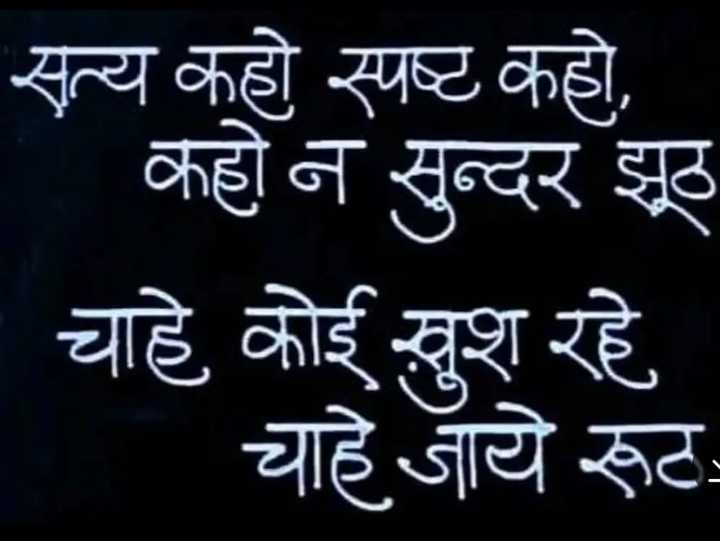 सत्य कहो स्पष्ट कहो,
कहो न सुन्दर झूठ
चाहे कोई ख़ुश रहे
चाहे जाये रूठ